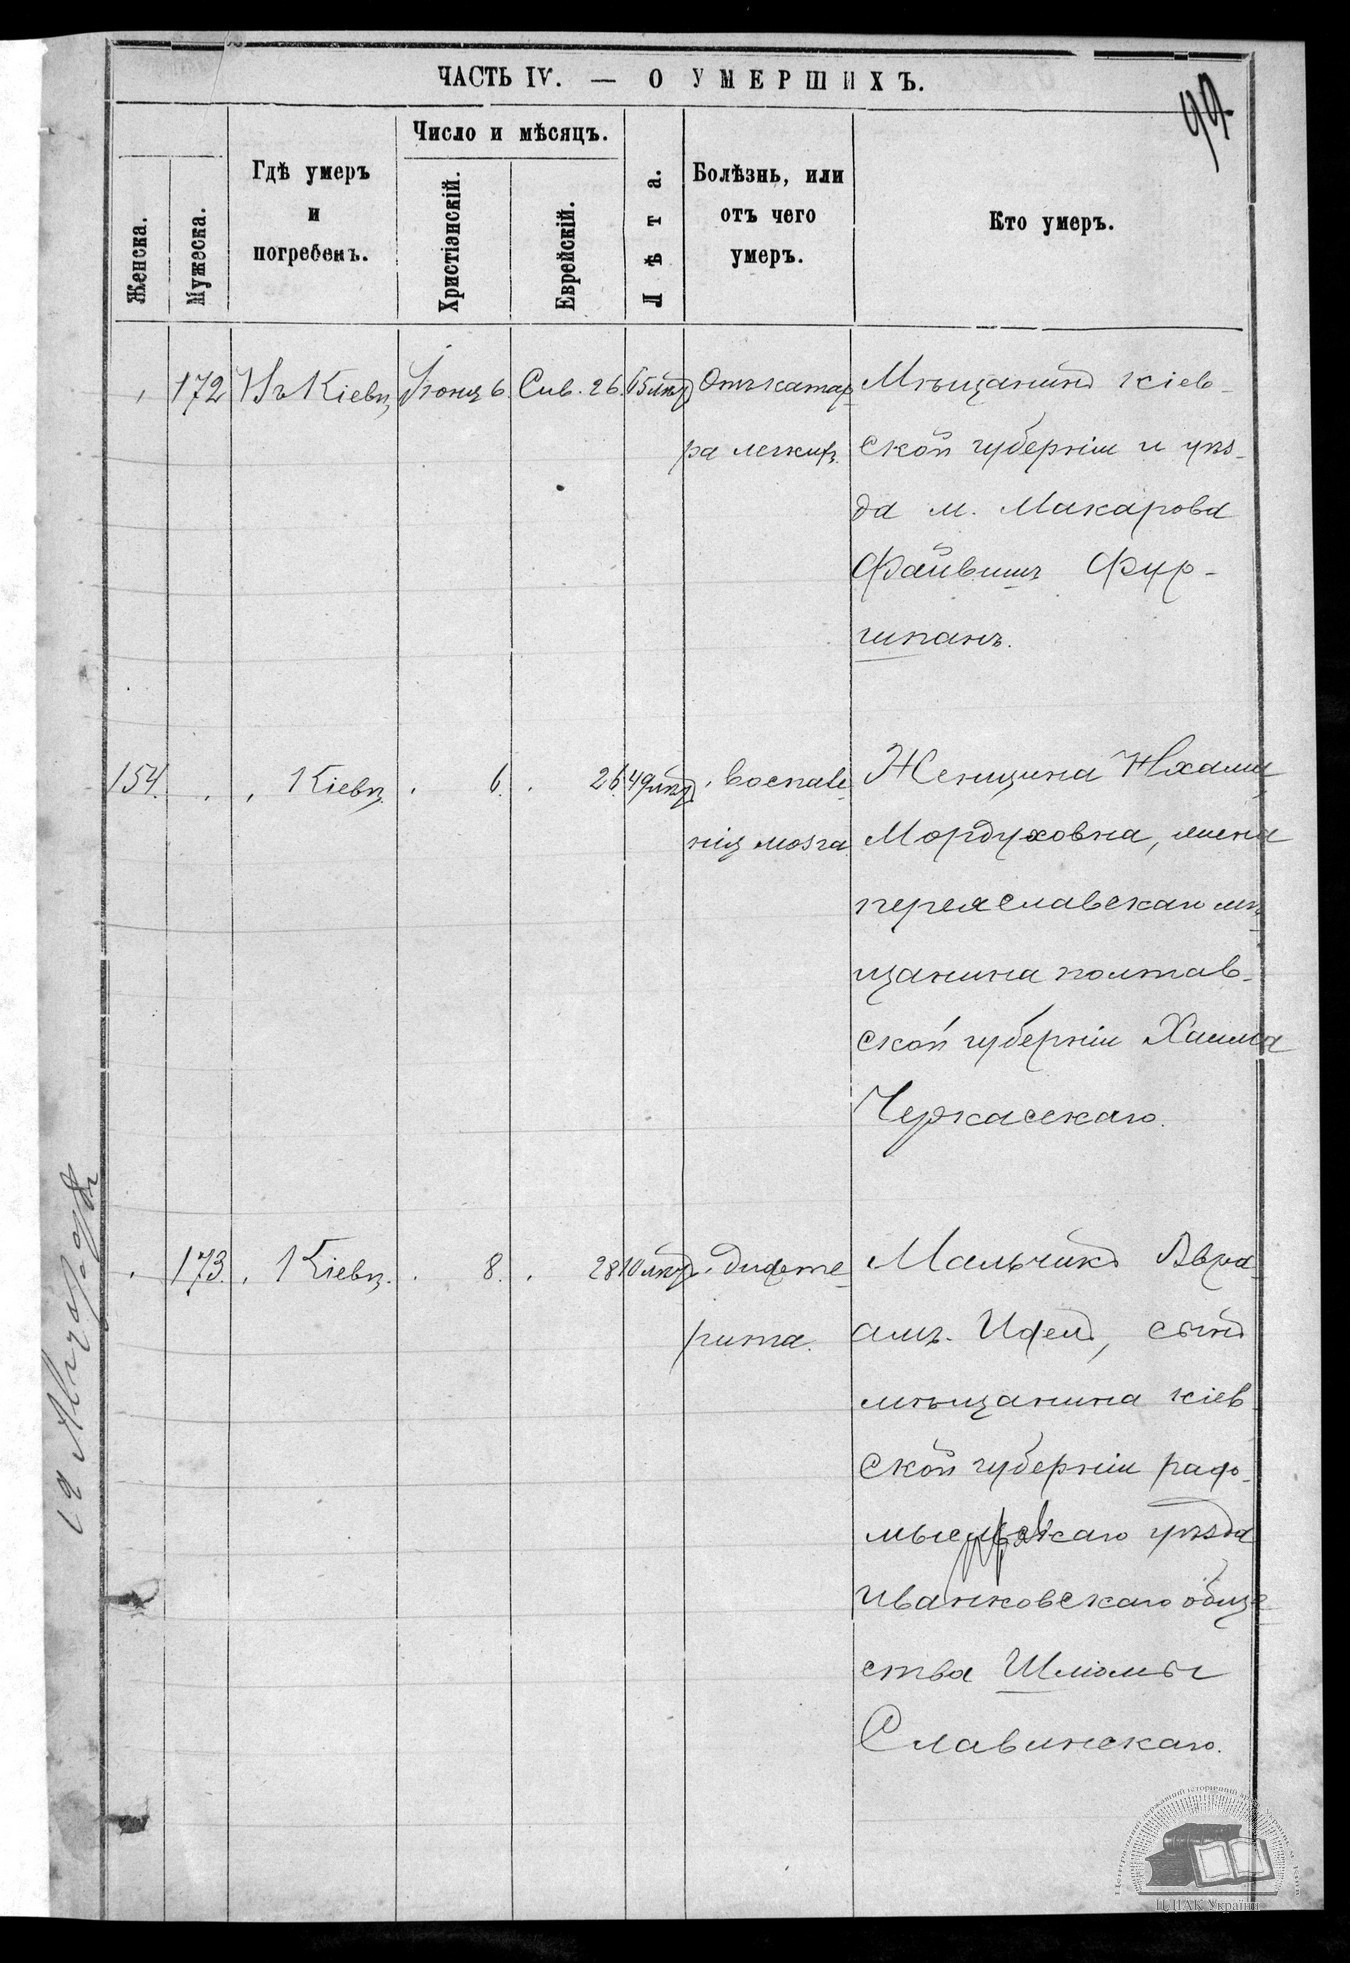 ЧАСТЬ IV. — О УМЕРШИХЪ.
99.
Женска.
Мужеска.
Гдѣ умеръ
и
погребенъ.
Число и мѣсяцъ.
Христіанскій.
Еврейскій.
Лѣта.
Болѣзнь, или
отъ чего
умеръ.
Кто умеръ.
172 Въ Кіевѣ Іюня 6. Сив. 26. 65 лѣтъ Отъ катар-
ра легкихъ.
Мѣщанинъ кіев-
ской губерніи и уѣз-
да м. Макарова
Файвишъ Фур-
шпанъ.
154. " " Кіевѣ. " 6. " 26. 49 лѣтъ. " воспале-
нія мозга.
Женщина
Мордуховна, жена
переяславскаго мѣ-
щанина полтав-
ской губерніи Хаима
Черкасскаго.
" 173. " Кіевѣ. " 8. " 28 10 лѣтъ. " дифте-
рита.
Мальчикъ Авра-
амъ-Иделъ, сынъ
мѣщанина кіев-
ской губерніи радо-
мысльскаго уѣзда
иванковскаго обще-
ства Шлиомы
Славинскаго.
Центральний державний історичний архів України, м. Київ
ЦДІАК України